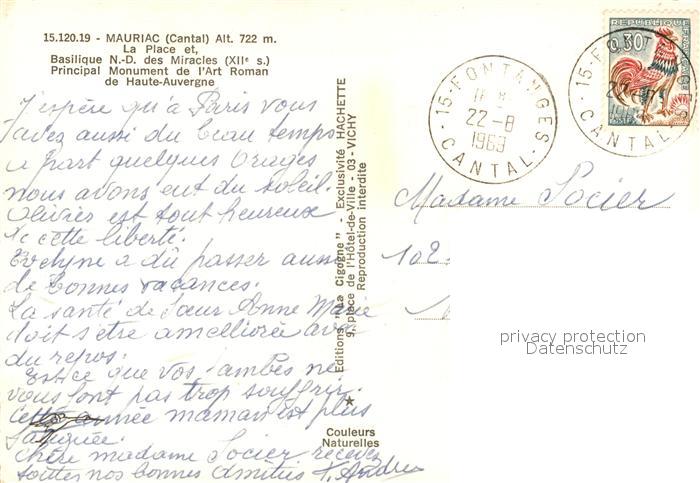 15.120.19 - MAURIAC (Cantal) Alt. 722 m.
La Place et,
Basilique N.-D. des Miracles (XIIe s.)
Principal Monument de l'Art Roman
de Haute-Auvergne
J'espère qu'à Paris vous
avez aussi du beau temps
a part quelques orages
nous avons eut du soleil.
Olivier est tout heureux
de cette liberté.
Evelyne a dû passer aussi
de bonnes vacances.
La santé de Sœur Anne Marie
doit s'être ameliorée avec
du repos.
Est ce que vos jambes ne
vous font pas trop souffrir.
Cette année maman est plus
fatiguée.
Chère madame Socier recevez
toutes nos bonnes amitiés
Editions "La Cigogne" - Exclusivité HACHETTE
9, place de l'Hôtel-de-Ville - 03-VICHY
Reproduction interdite
Couleurs
Naturelles
15-FONTANGES
22-8
1969
CANTAL
REPUBLIQUE FRANCAISE
0,30
POSTES
15-FONTANGES
22-8
CANTAL
Madame Socier
102
privacy protection
Datenschutz